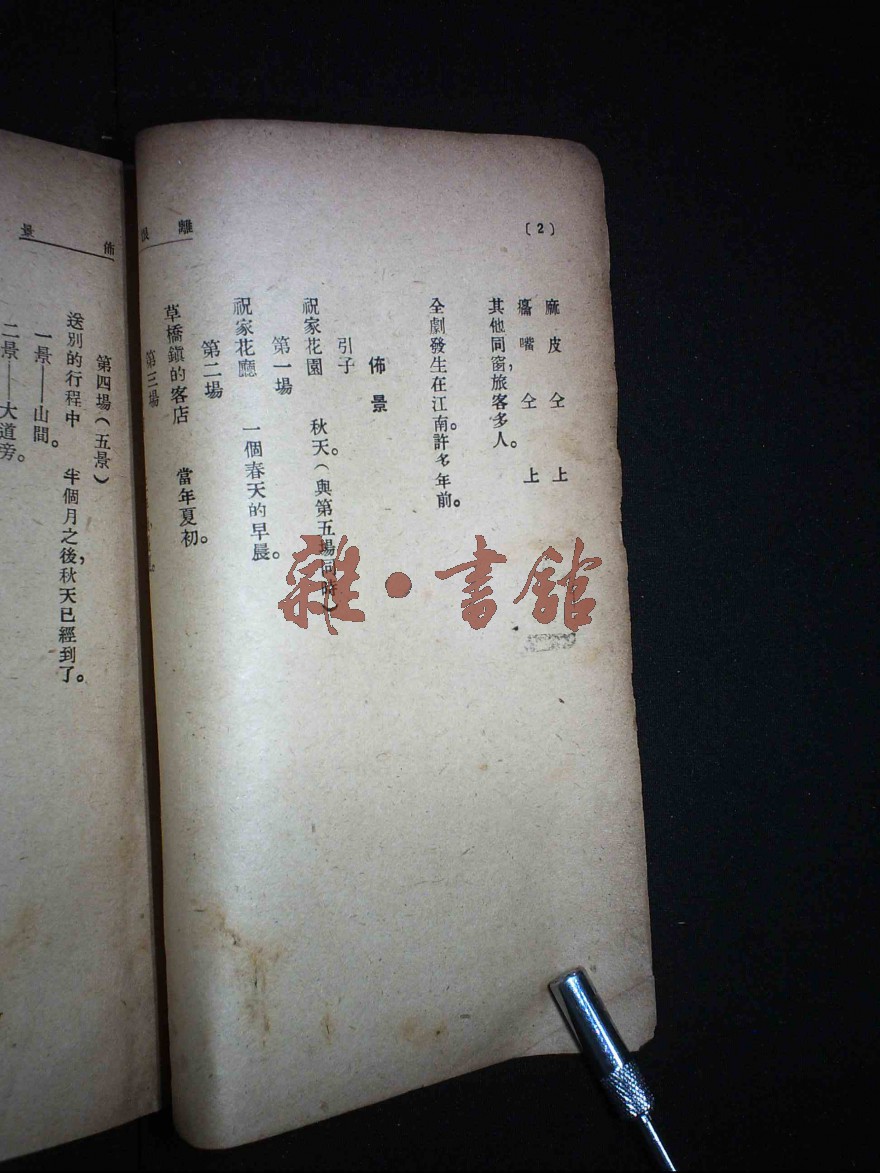 〔2〕
麻皮 仝上
癟嘴 仝上
其他同窗，旅客多人。
全劇發生在江南。許多年前。
佈景
引子
祝家花園 秋天。（與第五場同時）
第一場
祝家花廳 一個春天的早晨。
第二場
草橋鎮的客店 當年夏初。
第三場
離
佈景
第四場（五景）
送別的行程中 半個月之後，秋天已經到了。
一景——山間。
二景——大道旁。
雜·書館